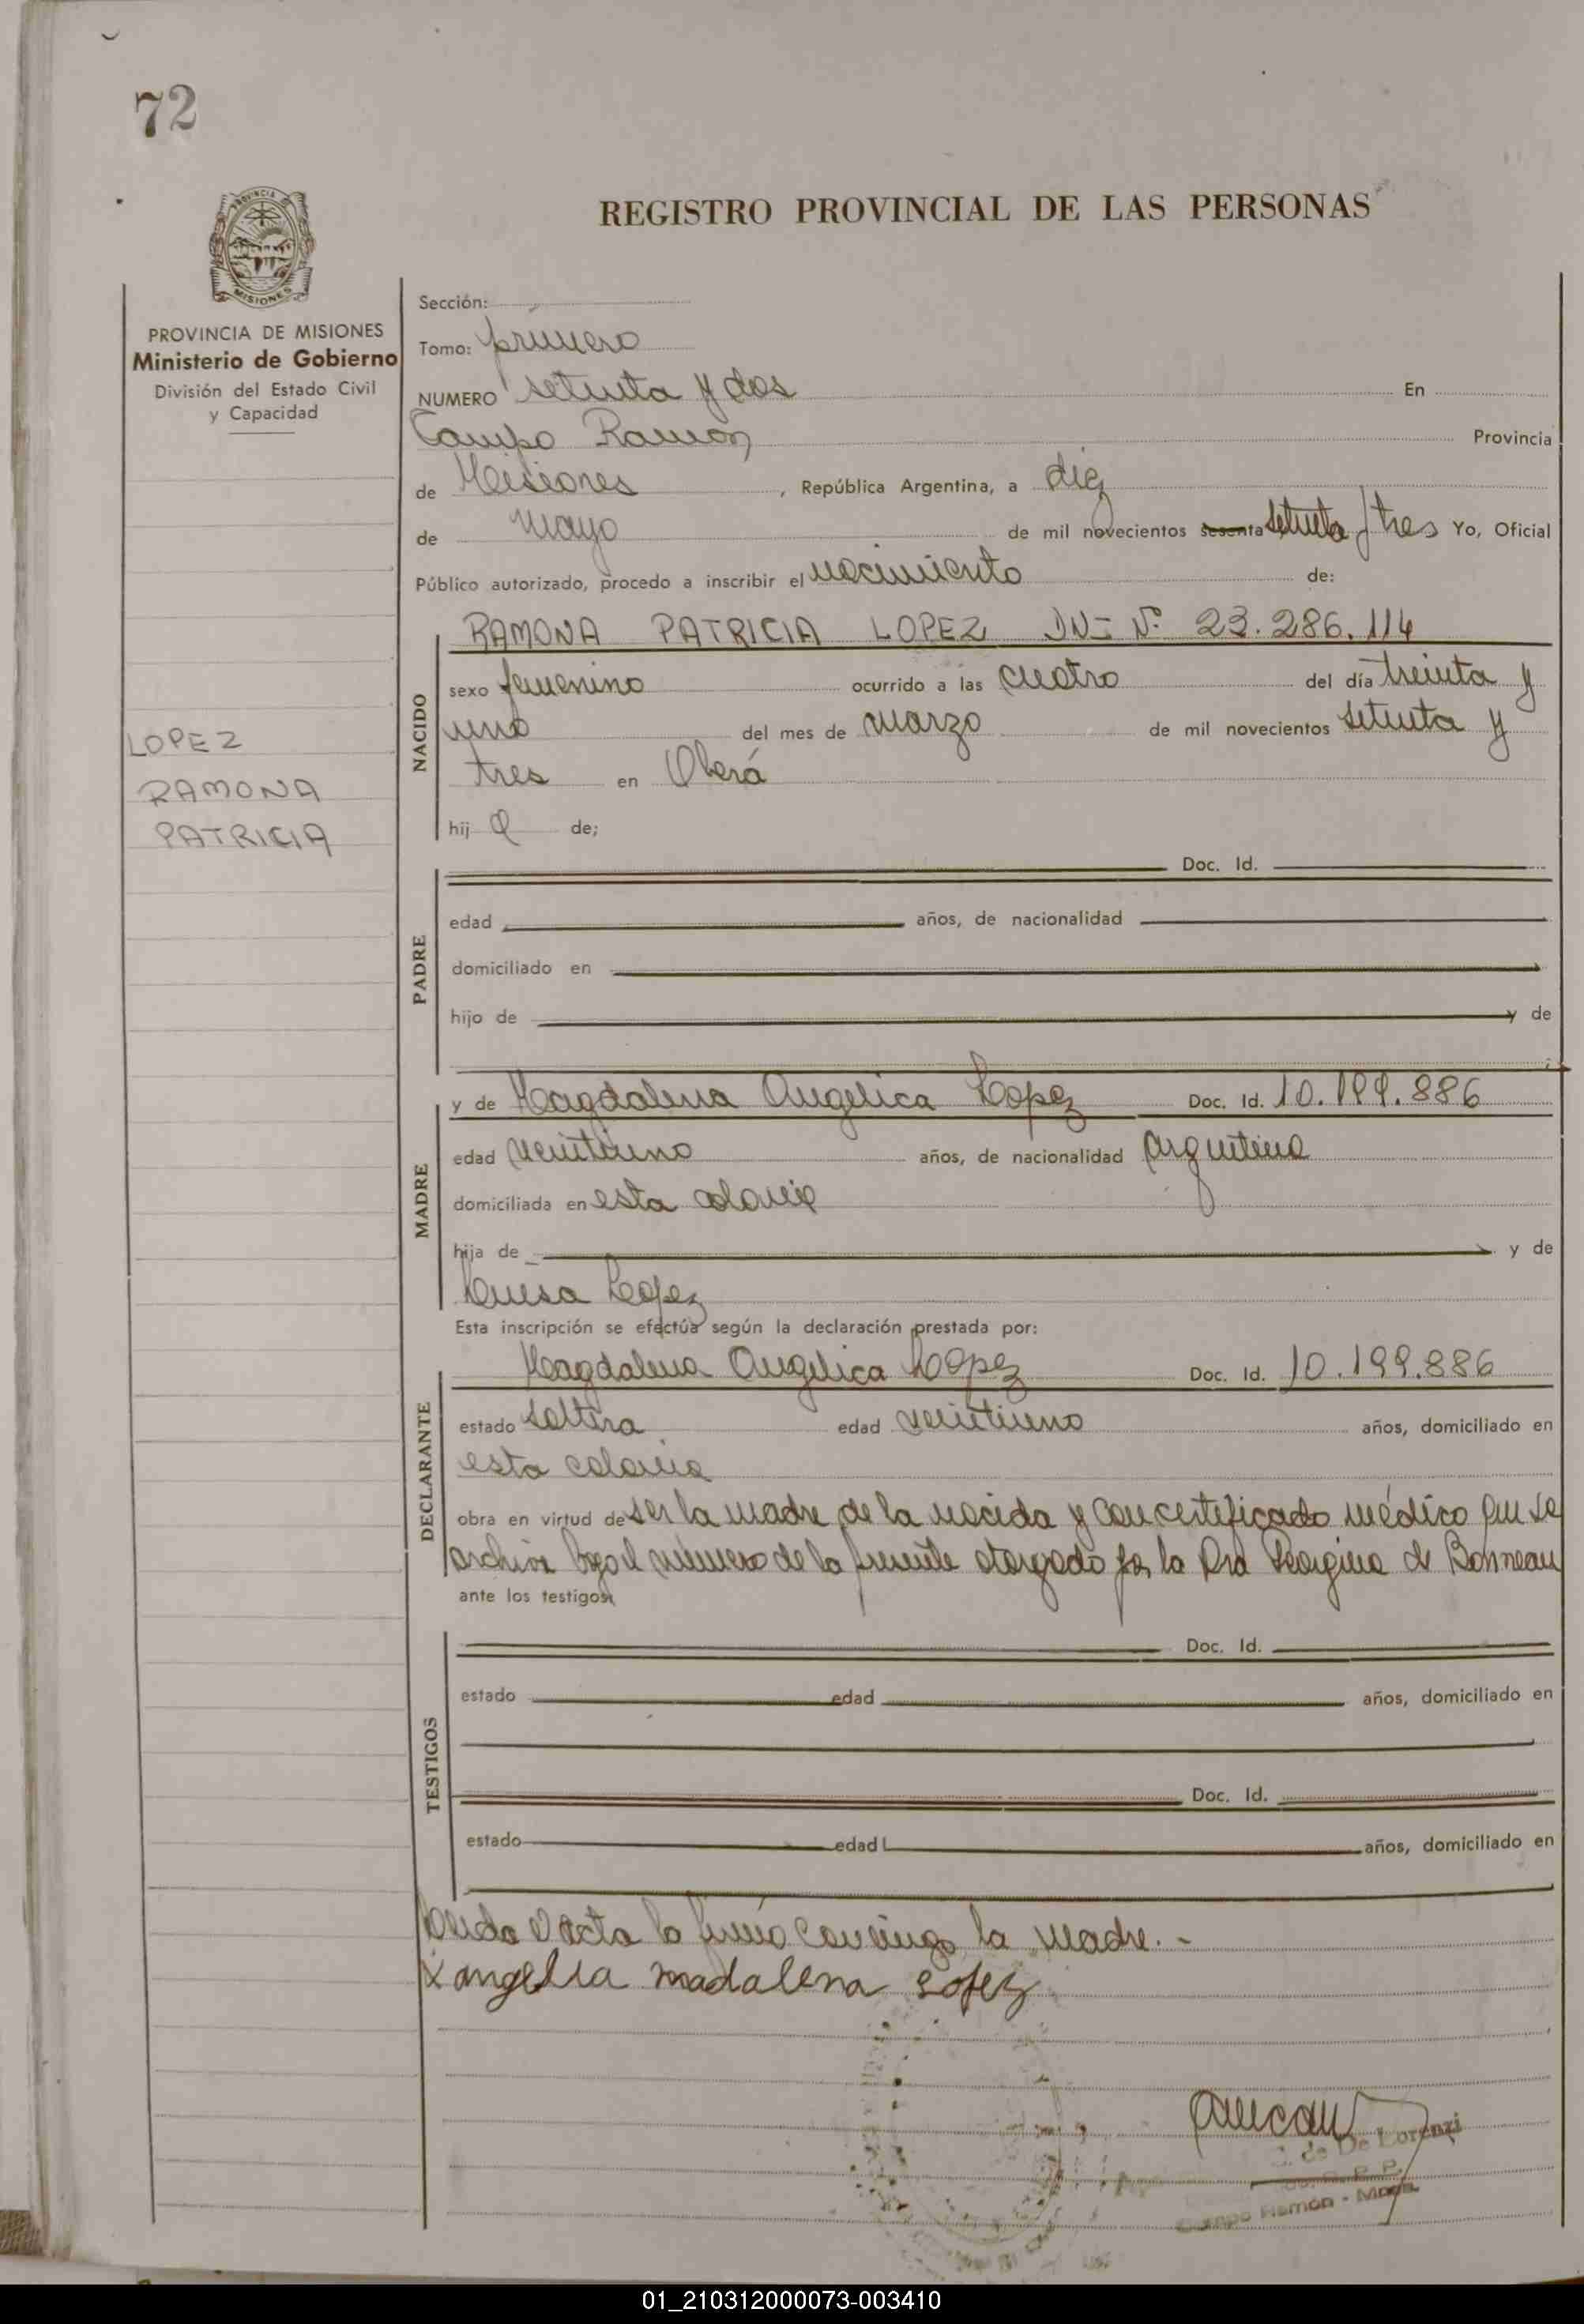 72
REGISTRO PROVINCIAL DE LAS PERSONAS
PROVINCIA
MISIONES
PROVINCIA DE MISIONES
Ministerio de Gobierno
División del Estado Civil
y Capacidad
LOPEZ
RAMONA
PATRICIA
Sección:
Tomo: primero
NUMERO setenta y dos En
Campo Ramon Provincia
de Misiones, República Argentina, a diez
de mayo de mil novecientos sesenta setenta y tres Yo, Oficial
Público autorizado, procedo a inscribir el nacimiento de:
NACIDO
RAMONA PATRICIA LOPEZ DNI Nº 23.286.114
sexo femenino ocurrido a las cuatro del día treinta y
uno del mes de marzo de mil novecientos setenta y
tres en Oberá
hij a de;
PADRE
Doc. Id.
edad años, de nacionalidad
domiciliado en
hijo de y de
MADRE
y de Magdalena Angelica Lopez Doc. Id. 10.199.886
edad veintiuno años, de nacionalidad argentina
domiciliada en esta colonia
hija de y de
Teresa Lopez
Esta inscripción se efectúa según la declaración prestada por:
DECLARANTE
Magdalena Angelica Lopez Doc. Id. 10.199.886
estado soltera edad veintiuno años, domiciliado en
esta colonia
obra en virtud de ser la madre de la nacida y con certificado médico que se
archiva bajo el número de la presente otorgado por la Dra Georgina de Bonneau
ante los testigos
TESTIGOS
Doc. Id.
estado edad años, domiciliado en
Doc. Id.
estado edad años, domiciliado en
Leida el acta la firma conmigo la madre.-
x angelia madalena Lopez
C. de De Lorenzi
Campo Ramón - Mnes.
01_210312000073-003410